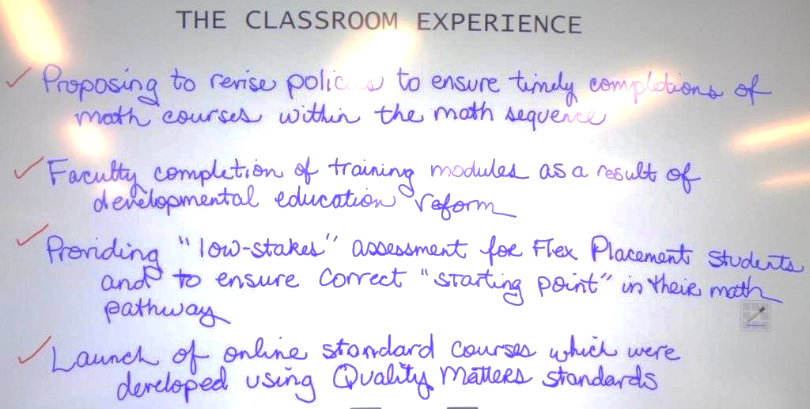 THE CLASSROOM EXPERIENCE
Proposing to revise policies to ensure timely completions of
math courses within the math sequence
Faculty completion of training modules as a result of
developmental education reform
Providing "low-stakes" assessment for Flex Placement students
and to ensure correct "starting point" in their math
pathway
Launch of online standard courses which were
developed using Quality Matters standards